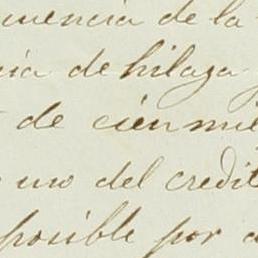 uencia de la
cia de hilaza
de cien mil
uso del credit
posible por